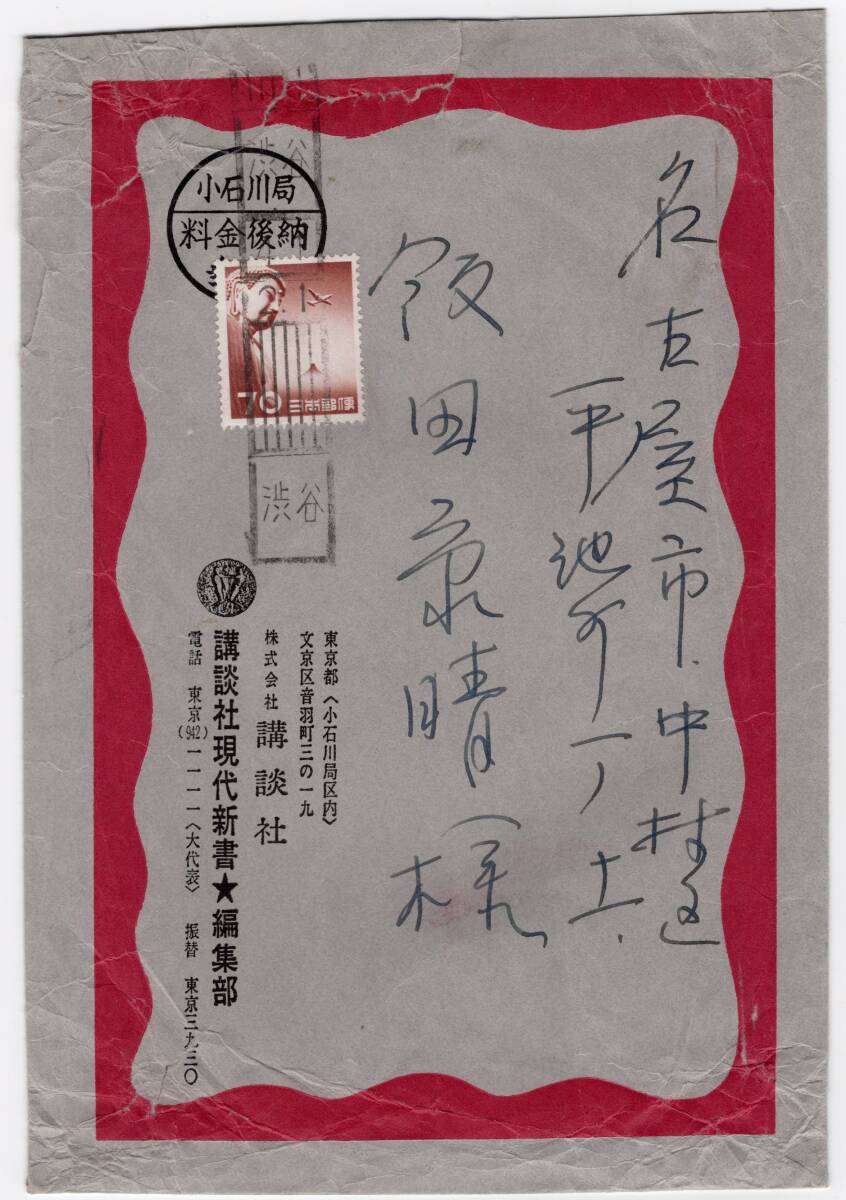 名古屋市中村区
平池町一ノ十六
飯田 晴様
小石川局
料金後納
渋谷
70 日本郵便
渋谷
東京都〈小石川局区内〉
文京区音羽町三の一九
株式会社 講談社
講談社現代新書★編集部
電話 東京(942)一一一一〈大代表〉 振替 東京三九三〇